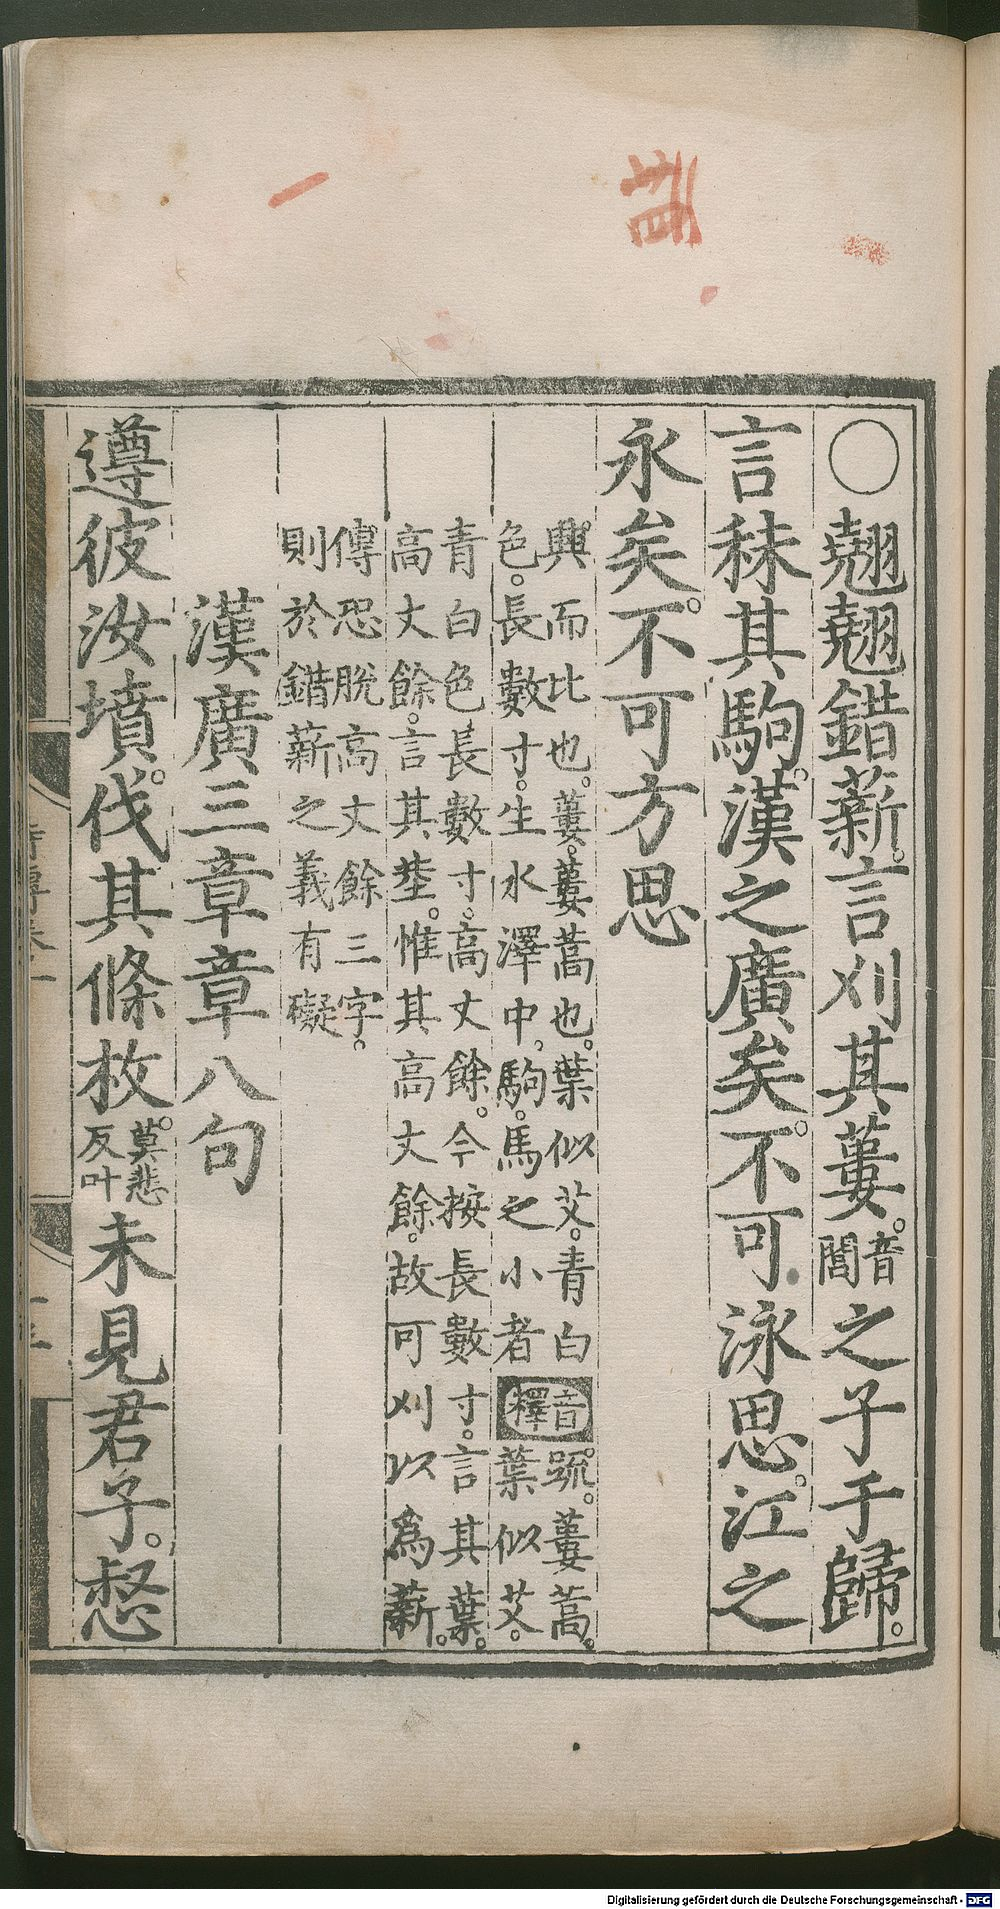 ○翹翹錯薪。言刈其蔞。音閭之子于歸。
言秣其駒。漢之廣矣。不可泳思。江之
永矣。不可方思
興而比也。蔞。蔞蒿也。葉似艾。青白
色。長數寸。生水澤中。駒。馬之小者
音釋
疏。蔞蒿。
葉似艾。
青白色長數寸。高丈餘。今按長數寸。言其葉。
高丈餘。言其莖。惟其高丈餘。故可刈以爲薪。
傳恐脫高丈餘三字。
則於錯薪之義有礙
漢廣三章章八句
遵彼汝墳。伐其條枚。莫悲反叶未見君子。惄
Digitalisierung gefördert durch die Deutsche Forschungsgemeinschaft - DFG